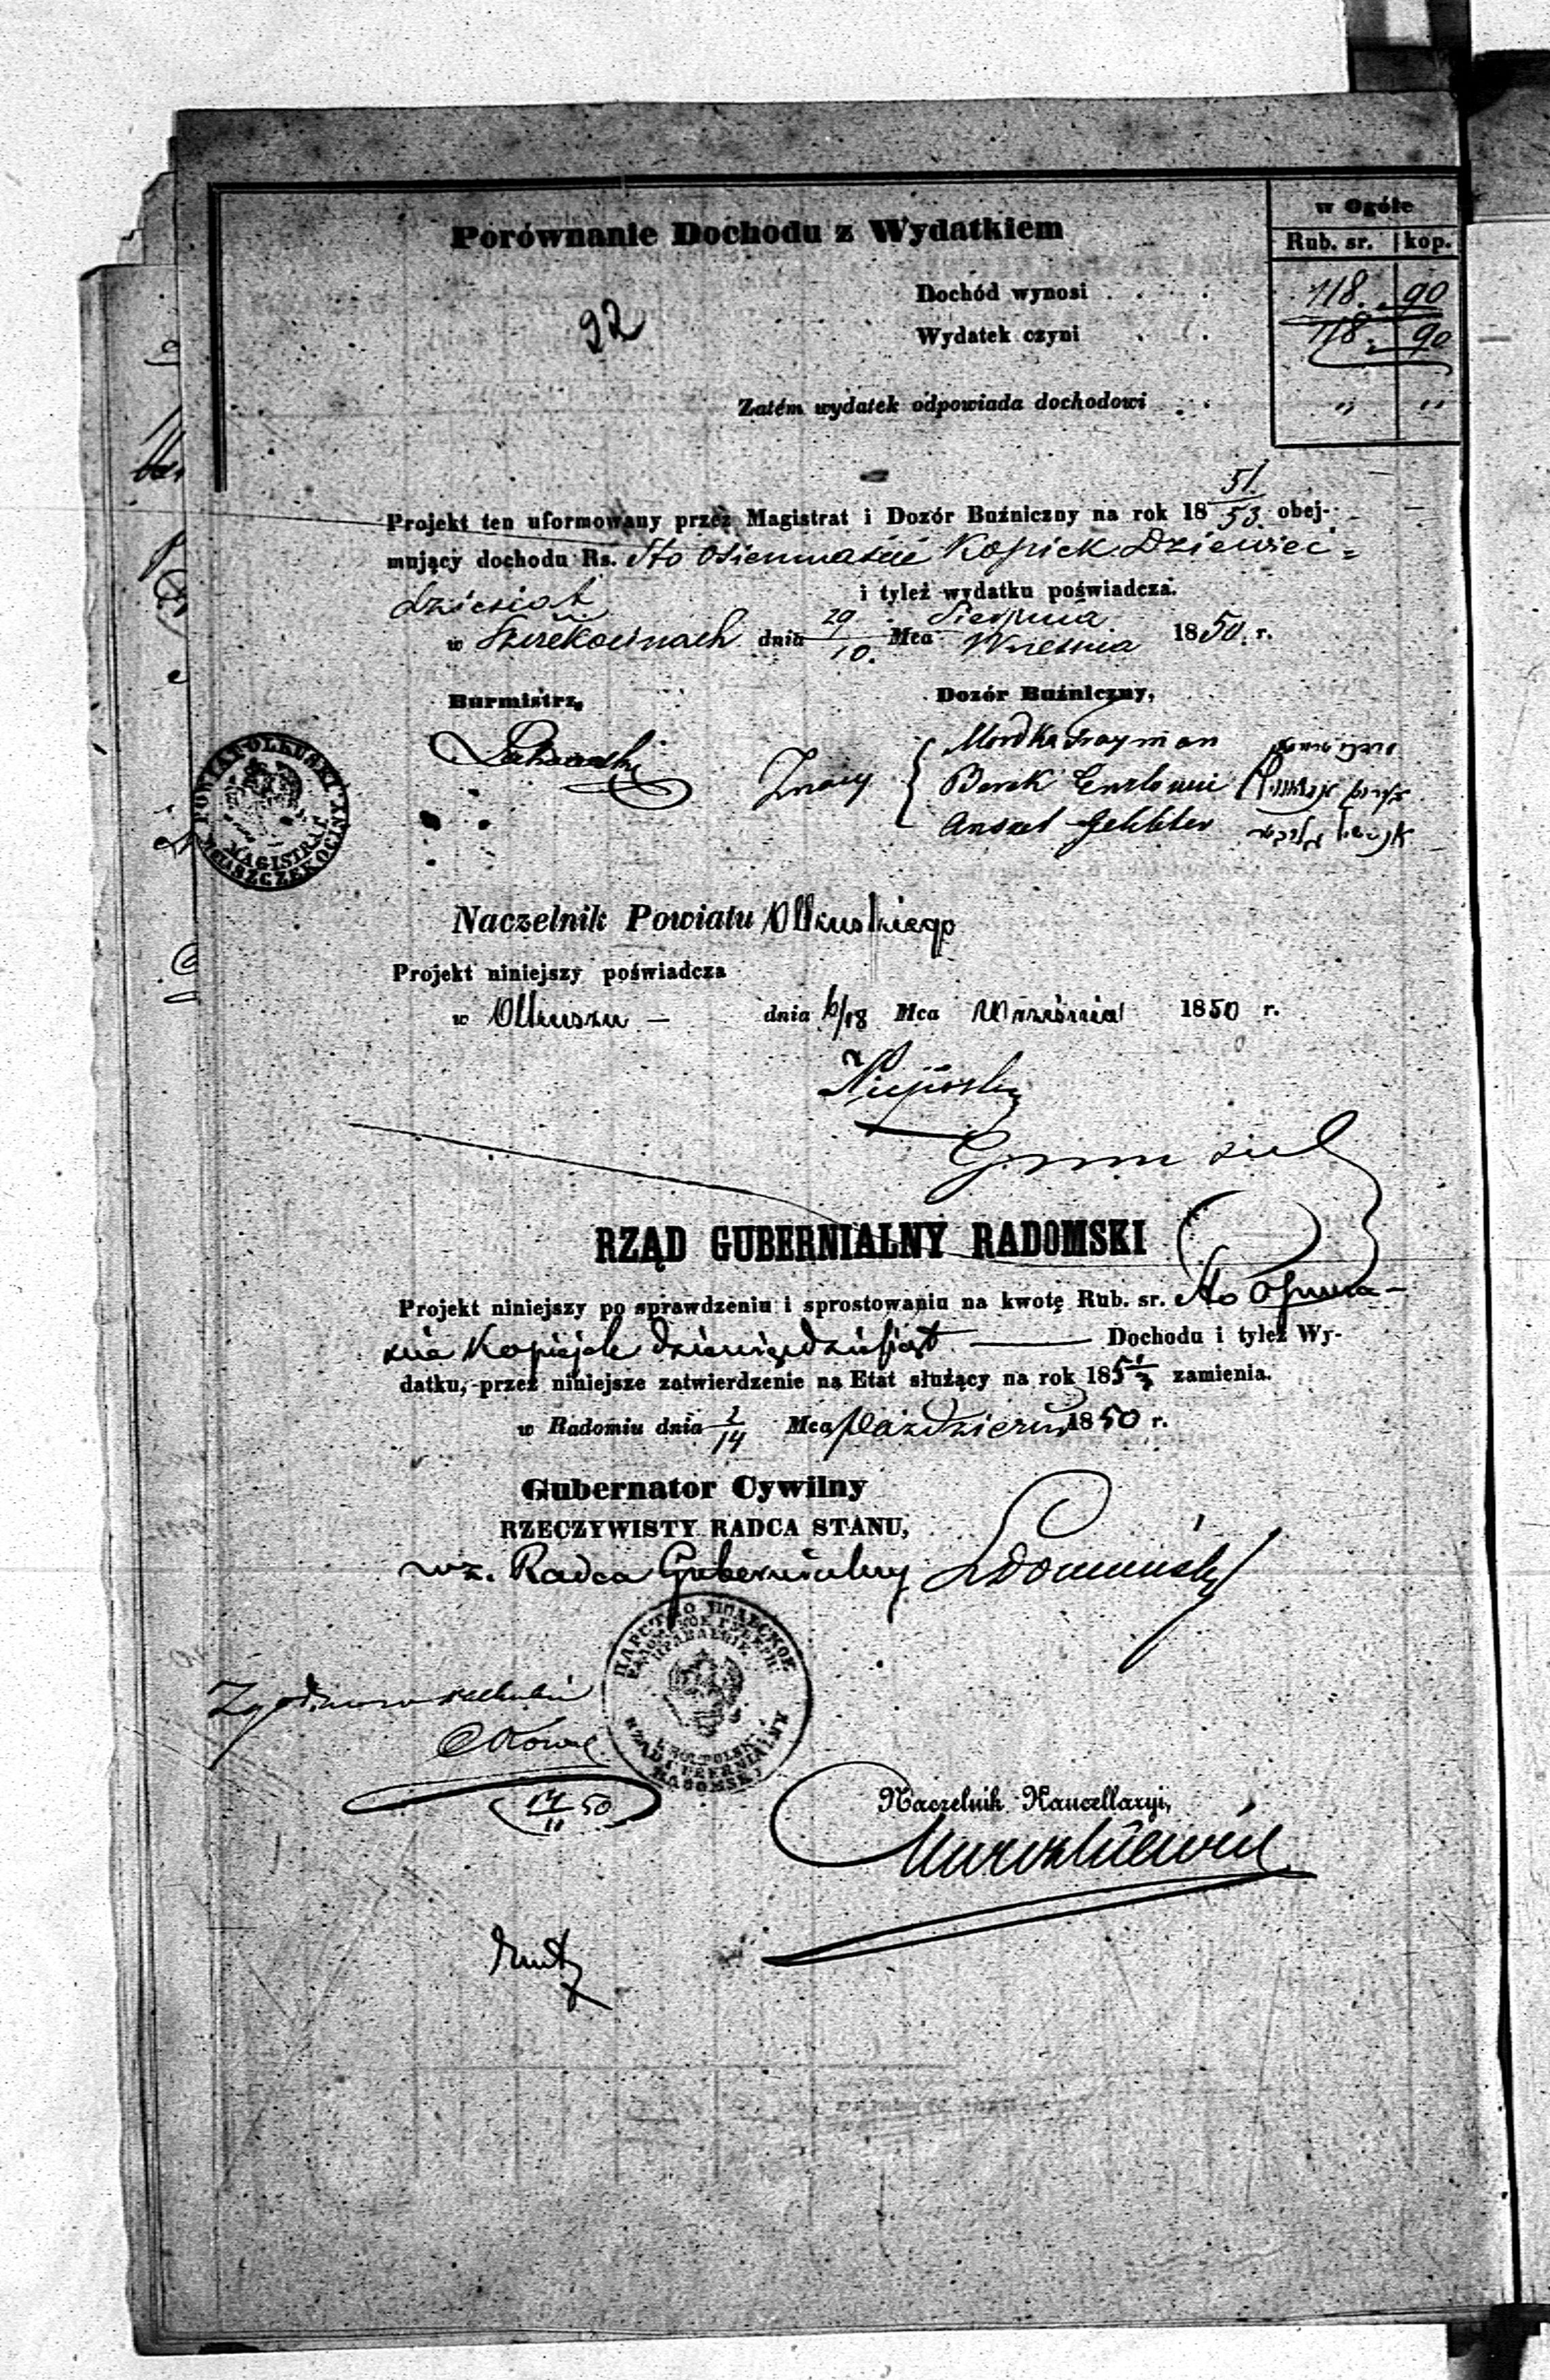 Porównanie Dochodu z Wydatkiem
w Ogóle
Rub. sr. kop.
Dochód wynosi . . . 118. 90
92
Wydatek czyni . . . 118. 90
Zatém wydatek odpowiada dochodowi . . . " "
Projekt ten uformowany przez Magistrat i Dozór Buźniczny na rok 18 51/53. obej-
mujący dochodu Rs. Sto Osiemnaście Kopiek Dziewiec=
dziesiat i tyleż wydatku poświadcza.
w Szczekocinach dnia 29/10. Mca Sierpnia/Września 1850. r.
Burmistrz,
Dozór Buźniczny,
Mordka Frayman
Berek
Ansel
POWIAT OLKUSKI
MAGISTRAT
Naczelnik Powiatu Olkuskiego
Projekt niniejszy poświadcza
w Olkuszu — dnia 6/18 Mca Września 1850 r.
RZĄD GUBERNIALNY RADOMSKI
Projekt niniejszy po sprawdzeniu i sprostowaniu na kwotę Rub. sr. Sto Ośmna-
ście Kopiejek dziewięćdziesiąt — Dochodu i tyleż Wy-
datku, przez niniejsze zatwierdzenie na Etat służący na rok 185 1/3 zamienia.
w Radomiu dnia 2/14 Mca Październ 1850 r.
Gubernator Cywilny
RZECZYWISTY RADCA STANU,
wz. Radca Gubernialny
ЦАРСТВО ПОЛЬСКОЕ
RZĄD GUBERNIALNY
RADOMSKI
17/11 50
Naczelnik Kancellaryi,